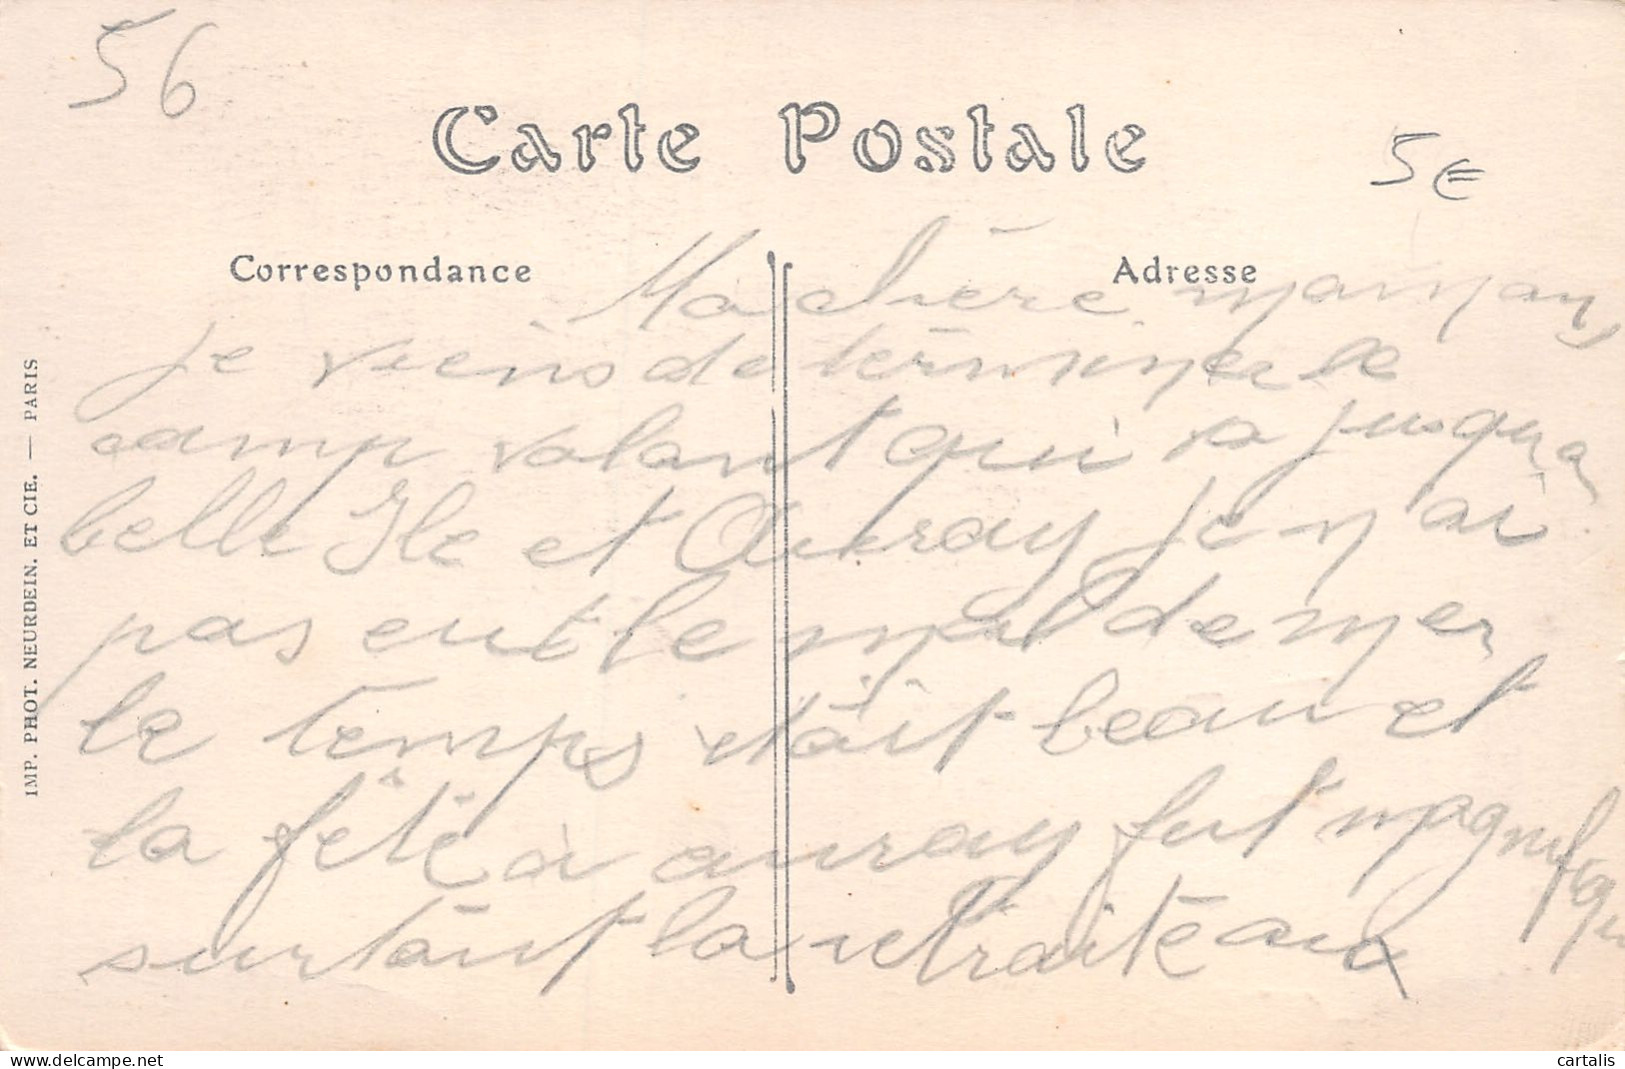 56
Carte Postale
5€
Correspondance
Adresse
Ma chère maman
je viens de terminer le
camp volant qui va jusqu'a
belle Ile et Auray je n'ai
pas eut le mal de mer
le temps était beau et
la fête à auray fut magnifique
surtout la retraite aux
IMP. PHOT. NEURDEIN. ET CIE. — PARIS
cartalis